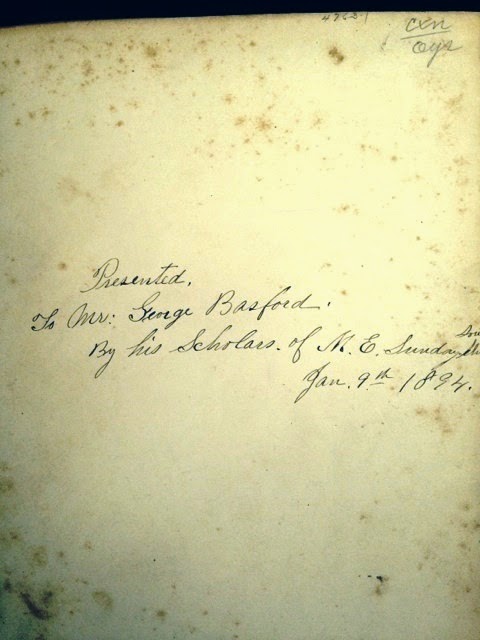 cxn
oys
Presented.
To Mr. George Basford.
By his Scholars. of M. E. Sunday
Jan. 9th 1894.